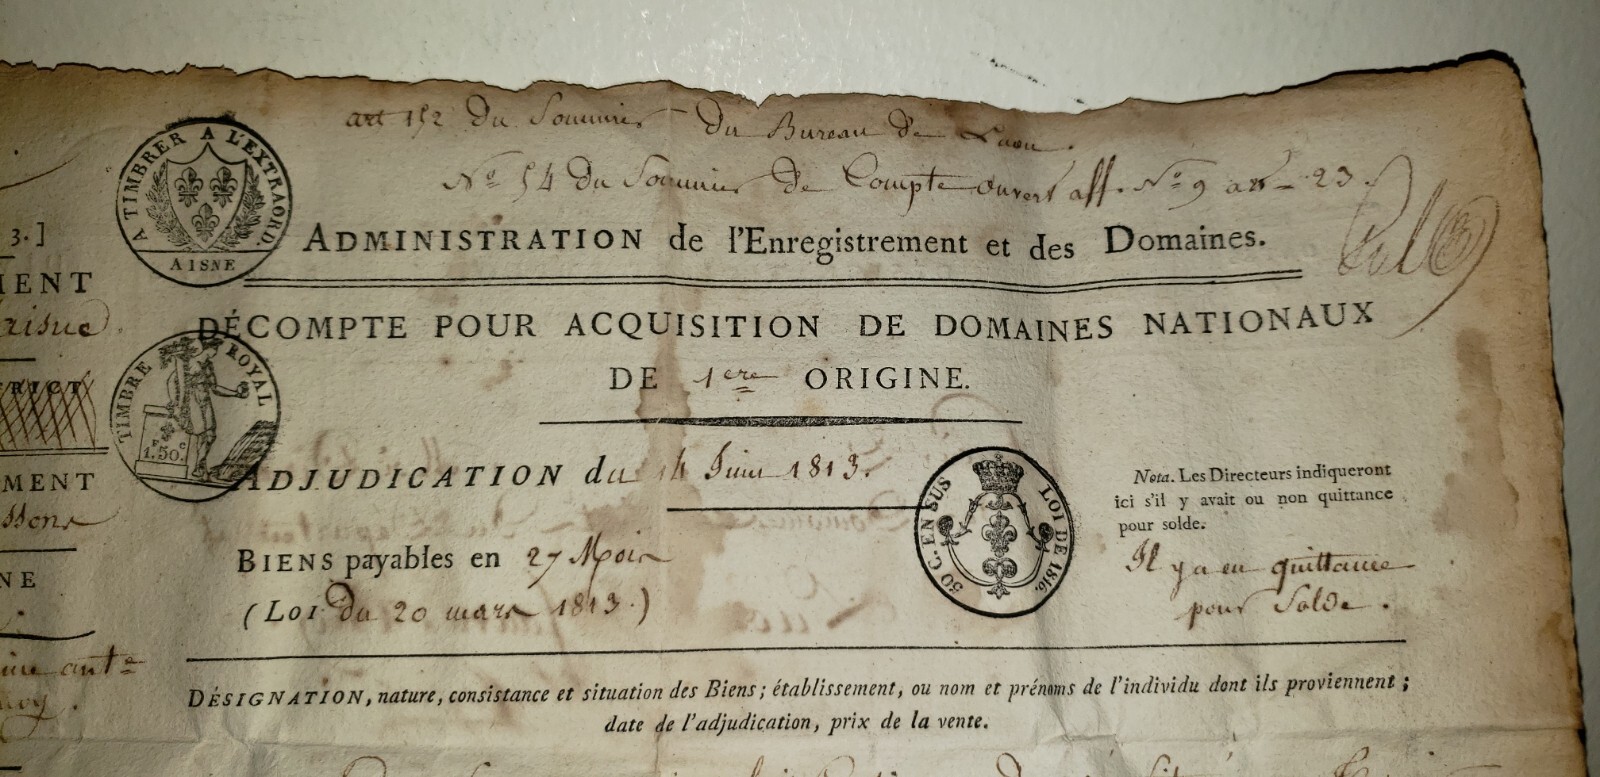 art 152 du Sommier du Bureau de Laon.
No 54 du Sommier de Compte ouvert aff. No 9 an 23.
A TIMBRER A L'EXTRAORD.
AISNE
3.]
ADMINISTRATION de l'Enregistrement et des Domaines.
MENT
DÉCOMPTE POUR ACQUISITION DE DOMAINES NATIONAUX
DE 1ere ORIGINE.
TIMBRE ROYAL
1.50.c
ADJUDICATION du 14 Juin 1813.
30 C. EN SUS LOI DE 1816.
Nota. Les Directeurs indiqueront
ici s'il y avait ou non quittance
pour solde.
MENT
BIENS payables en 27 Mois
Il y a eu quittance
pour Solde.
NE
(LOI du 20 mars 1813.)
DÉSIGNATION, nature, consistance et situation des Biens; établissement, ou nom et prénoms de l'individu dont ils proviennent;
date de l'adjudication, prix de la vente.